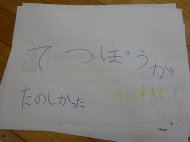 てつぼうが
たのしかった